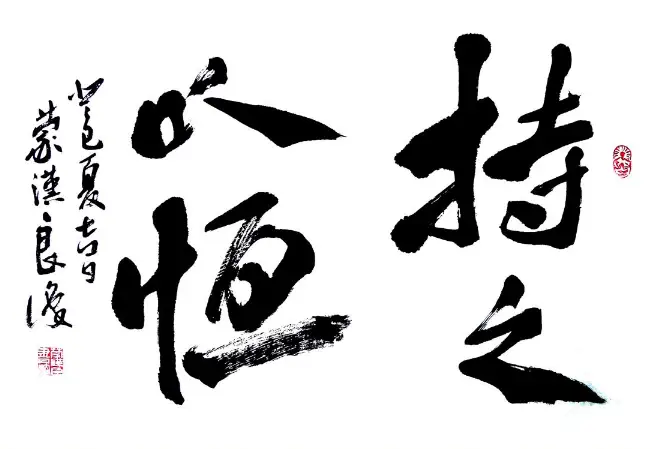 持之
以恒
癸巳夏吉日
蒙漢良